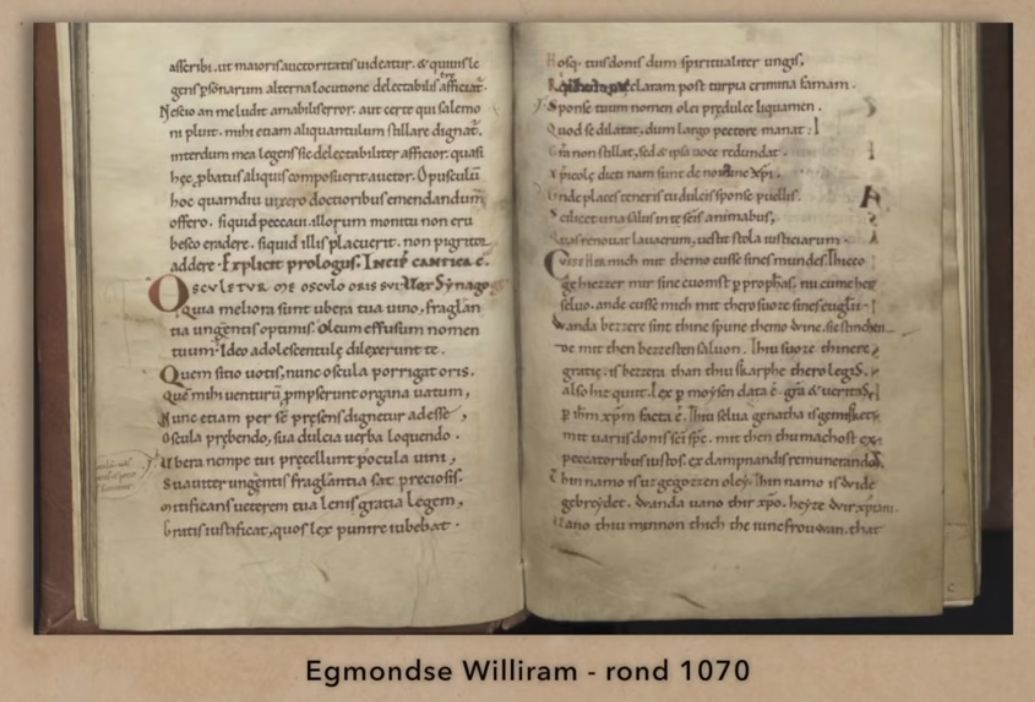 asseribi. ut maioris auctoritatis uideatur. & quiuis le
gens psonarum alterna locutione delectabilis afficiat.
Nescio an me ludit amabilis error. aut certe qui salemo
ni pluit. mihi etiam aliquantulum stillare dignat.
interdum mea legens sic delectabiliter afficior. quasi
hęc pbatus aliquis composuerit auctor. Opusculū
hoc quamdiu uixero doctioribus emendandum
offero. siquid peccaui. illorum monitu non eru
besco eradere. siquid illis placuerit. non pigritor
addere. Explicit prologus. Incip cantica c.
Osculetur me osculo oris sui. Vox Synago
quia meliora sunt ubera tua uino, fraglan
tia ungentis optimis. Oleum effusum nomen
tuum. Ideo adolescentulę dilexerunt te.
Quem sitio uotis, nunc oscula porrigat oris.
Quē mihi uenturū pmpserunt organa uatum,
Nunc etiam per sē pręsens dignetur adesse,
Oscula prębendo, sua dulcia uerba loquendo.
Vbera nempe tui pręcellunt pocula uini,
Suauiter ungentis fraglantia sat preciosis.
Mitificans ueterem tua lenis gratia legem,
Gratis iustificat, quos lex punire iubebat.
Hosq. tuis donis dum spiritualiter ungis,
claram post turpia crimina famam.
Sponse tuum nomen olei prędulce liquamen.
Quod se dilatat, dum largo pectore manat:
non stillat, sed & ipsa uoce redundat.
Xpicolę dicti nam sunt de nomine Xpi.
Vnde places teneris tu dulcis sponse puellis.
Scilicet una salus in te seis animabus,
Quas renouat lauacrum, uestit stola iusticiarum.
Cusse her mich mit themo cusse sines mundes. Thicco
gehiezzer mir sine cuomst p prophas. nu cume her
seluo. ande cusse mich mit thero suoze sines euglii.
Wanda bezzere sint thine spune themo wine. sie stinchen
de mit then bezzesten saluon. Thiu suoze thinere
gratię. is bezzera than thiu skarphe thero legis.
also hiz quit. Lex p moysen data ē. gra & veritas.
p ihm xpm facta ē. Thiu selua genatha is gemisket
mit uariis donis sci sps. mit then thu machost ex
peccatoribus iustos. ex dampnandis remunerandos.
Thin namo is uz gegozzen oley. Thin namo is wide
gebreydet. Wanda uano thir xpo. heyze wir xpiani.
Vano thiu minnon thich the iunefrouwan. that
Egmondse Williram - rond 1070